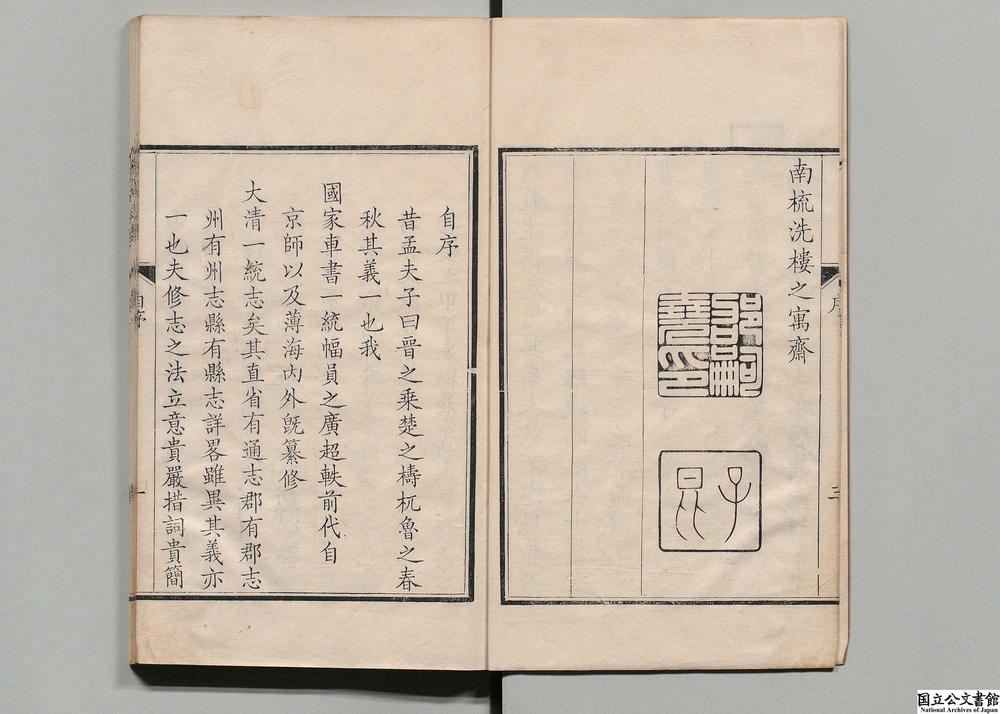 南梳洗樓之寓齋
子昆
序
三
自序
昔孟夫子曰晉之乘楚之檮杌魯之春
秋其義一也我
國家車書一統幅員之廣超軼前代自
京師以及薄海內外旣纂修
大清一統志矣其直省有通志郡有郡志
州有州志縣有縣志詳畧雖異其義亦
一也夫修志之法立意貴嚴措詞貴簡
自序
一
国立公文書館
National Archives of Japan